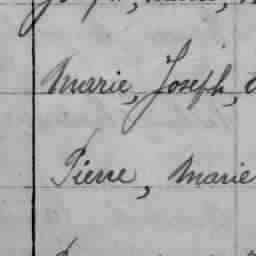 Marie, Joseph,
Pierre, Marie